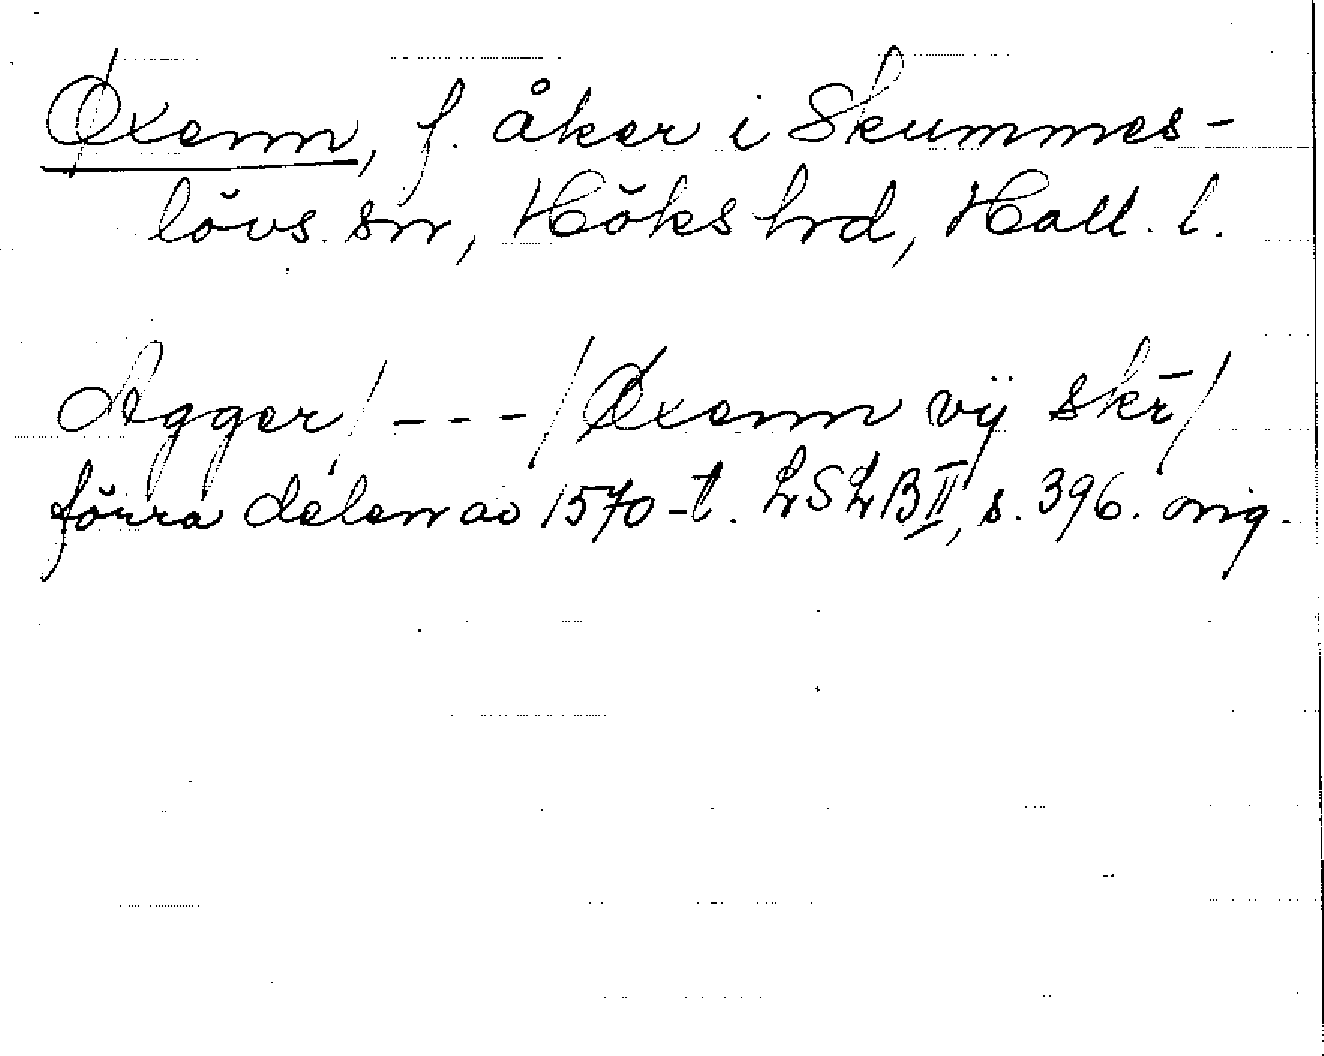 Øxenn, f. åker i Skummes-
lövs sn, Höks hrd, Hall. l.
Agger / - - - / Øxenn vÿ skr̄ /
förra delen av 1570-t. LSLB II, s. 396. orig.